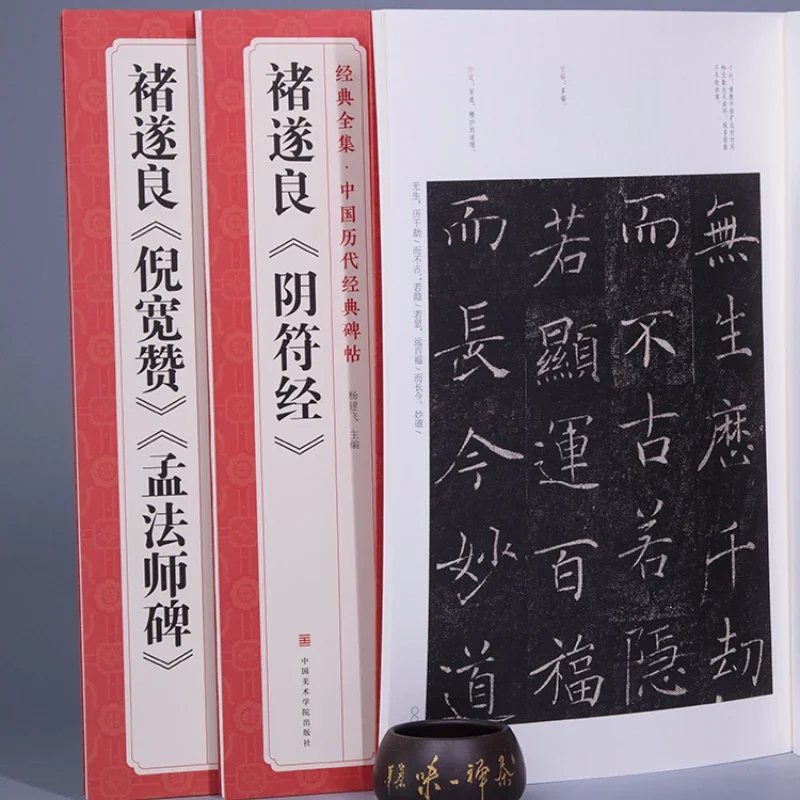 褚遂良《倪宽赞》《孟法师碑》
经典全集·中国历代经典碑帖
褚遂良《阴符经》
杨建飞 主编
中国美术学院出版社
百福，多福。
妙道，至道，精妙的道理。
無生歷千劫
而不古若隱
若顯運百福
而長今妙道
无生，历千劫/而不古；若隐/若显，运百福/而长今。妙道/
茶禪一味